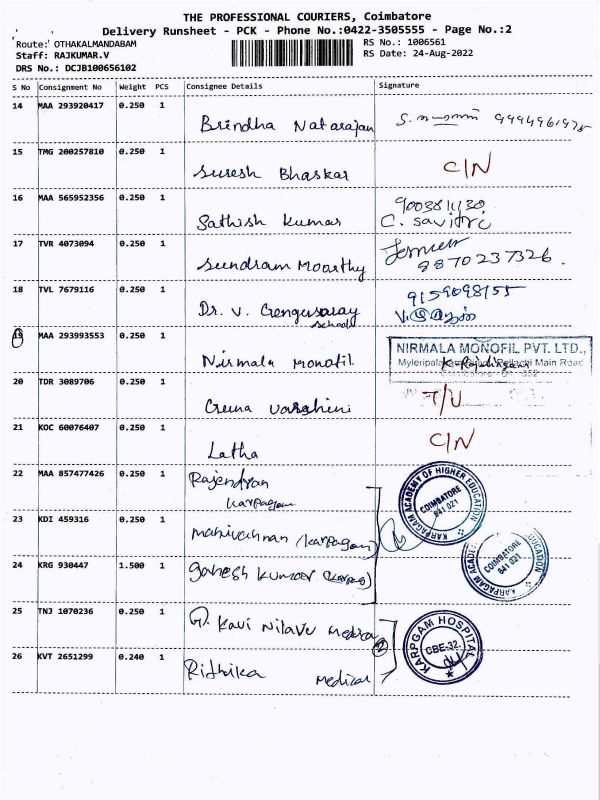 THE PROFESSIONAL COURIERS, Coimbatore
Delivery Runsheet - PCK - Phone No.:0422-3505555 - Page No.:2
Route: OTHAKALMANDABAM RS No.: 1006561
Staff: RAJKUMAR.V RS Date: 24-Aug-2022
DRS No.: DCJB100656102
S No Consignment No Weight PCS Consignee Details Signature
14 MAA 293920417 0.250 1 Brindha Natarajan
15 TMG 200257810 0.250 1 Suresh Bhaskar C/N
16 MAA 565952356 0.250 1 Sathish Kumar C. Savitri
17 TVR 4073094 0.250 1 Sundram Moorthy 9870237326.
18 TVL 7679116 0.250 1 Dr. V. school 9159098155
19 MAA 293993553 0.250 1 Nirmala Monofil NIRMALA MONOFIL PVT. LTD.,
Pollachi Main Road
20 TDR 3089706 0.250 1 T/U
21 KOC 60076407 0.250 1 Latha C/N
22 MAA 857477426 0.250 1 Rajendran
Karpagam
KARPAGAM ACADEMY OF HIGHER EDUCATION
COIMBATORE
641 021
23 KDI 459316 0.250 1 (Karpagam)
24 KRG 930447 1.500 1 Ganesh Kumar
KARPAGAM EDUCATION
COIMBATORE
641 021
25 TNJ 1070236 0.250 1 Kavi Nilavu Medical
KARPGAM HOSPITAL
CBE-32.
26 KVT 2651299 0.240 1 Rithika Medical